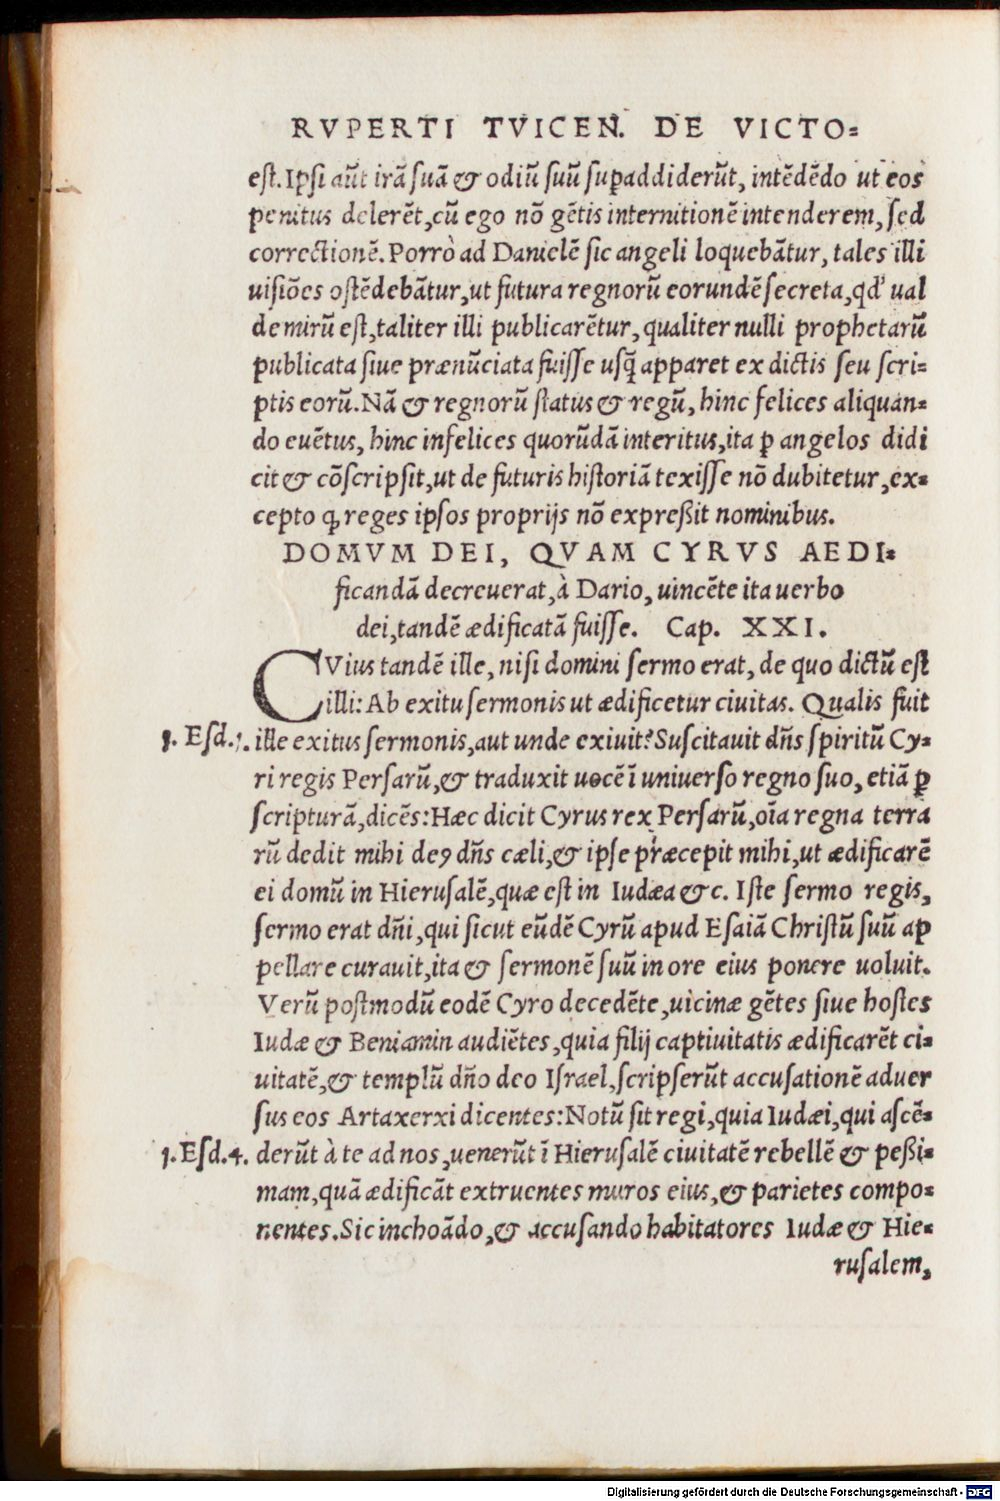 RVPERTI TVICEN. DE VICTO=
est. Ipsi aūt irā suā & odiū suū suꝑaddiderūt, intēdēdo ut eos
penitus delerēt, cū ego nō gētis internitionē intenderem, sed
correctionē. Porrò ad Danielē sic angeli loquebātur, tales illi
uisiōes ostēdebātur, ut futura regnorū eorundē secreta, qd' ual
de mirū est, taliter illi publicarētur, qualiter nulli prophetarū
publicata siue prænūciata fuisse usq̄ apparet ex dictis seu scri=
ptis eorū. Nā & regnorū status & regū, hinc felices aliquan=
do euētus, hinc infelices quorūdā interitus, ita ꝑ angelos didi
cit & cōscripsit, ut de futuris historiā texisse nō dubitetur, ex=
cepto ꝙ reges ipsos proprijs nō expreßit nominibus.
DOMVM DEI, QVAM CYRVS AEDI=
ficandā decreuerat, à Dario, uincēte ita uerbo
dei, tandē ædificatā fuisse. Cap. XXI.
CVius tandē ille, nisi domini sermo erat, de quo dictū est
illi: Ab exitu sermonis ut ædificetur ciuitas. Qualis fuit
1. Esd. 1. ille exitus sermonis, aut unde exiuit? Suscitauit dn̄s spiritū Cy=
ri regis Persarū, & traduxit uocē ī uniuerso regno suo, etiā ꝑ
scripturā, dicēs: Hæc dicit Cyrus rex Persarū, oīa regna terra
rū dedit mihi deꝰ dn̄s cæli, & ipse præcepit mihi, ut ædificarē
ei domū in Hierusalē, quæ est in Iudæa &c. Iste sermo regis,
sermo erat dn̄i, qui sicut eūdē Cyrū apud Esaiā Christū suū ap
pellare curauit, ita & sermonē suū in ore eius ponere uoluit.
Verū postmodū eodē Cyro decedēte, uicinæ gētes siue hostes
Iudæ & Beniamin audiētes, quia filij captiuitatis ædificarēt ci=
uitatē, & templū dn̄o deo Israel, scripserūt accusationē aduer
sus eos Artaxerxi dicentes: Notū sit regi, quia Iudæi, qui ascē=
1. Esd. 4. derūt à te ad nos, uenerūt ī Hierusalē ciuitatē rebellē & peßi=
mam, quā ædificāt extruentes muros eius, & parietes compo=
nentes. Sic inchoādo, & accusando habitatores Iudæ & Hie=
rusalem,
Digitalisierung gefördert durch die Deutsche Forschungsgemeinschaft - DFG